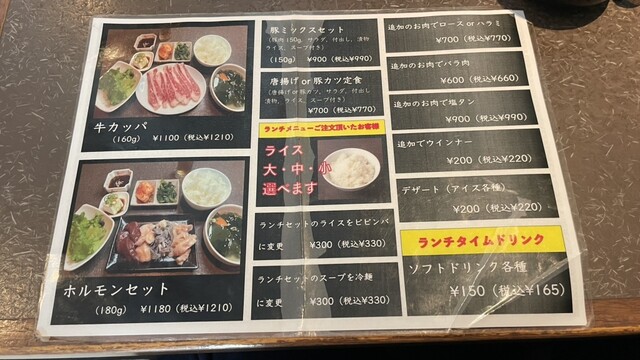 牛カッパ
(160g) ¥1100(税込¥1210)
ホルモンセット
(180g) ¥1180(税込¥1210)
豚ミックスセット
(豚肉150g、サラダ、付出し、漬物
ライス、スープ付き)
(150g) ¥900(税込¥990)
唐揚げor豚カツ定食
(唐揚げor豚カツ、サラダ、付出し
漬物、ライス、スープ付き)
¥700(税込¥770)
ランチメニューご注文頂いたお客様
ライス
大・中・小
選べます
ランチセットのライスをビビンバ
に変更 ¥300(税込¥330)
ランチセットのスープを冷麺
に変更 ¥300(税込¥330)
追加のお肉でロースorハラミ
¥700(税込¥770)
追加のお肉でバラ肉
¥600(税込¥660)
追加のお肉で塩タン
¥900(税込¥990)
追加でウインナー
¥200(税込¥220)
デザート(アイス各種)
¥200(税込¥220)
ランチタイムドリンク
ソフトドリンク各種
¥150(税込¥165)